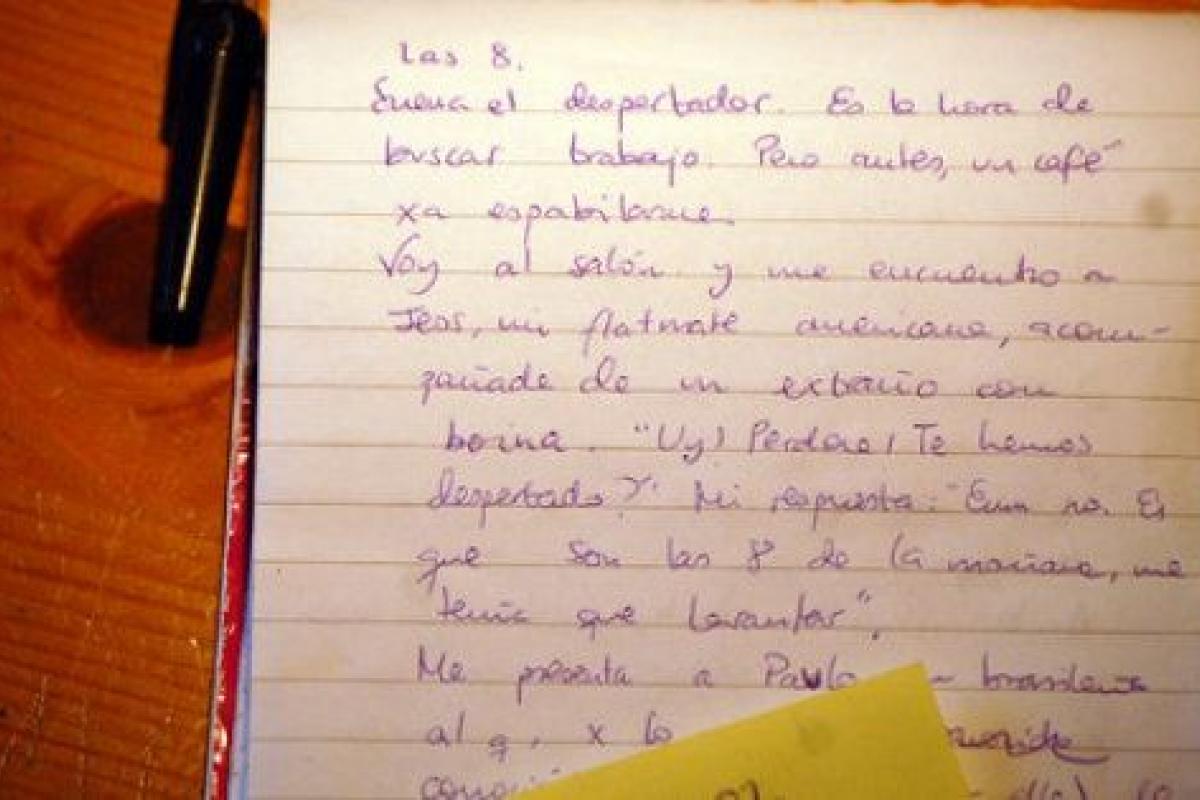 Las 8.
Suena el despertador. Es la hora de
buscar trabajo. Pero antes, un café
xa espabilarme.
Voy al salón y me encuentro a
mi flatmate americana, acom-
pañada de un extraño con
boina. "Uy! Perdona! Te hemos
despertado?". Mi respuesta: "Eum no. Es
que son las 8 de la mañana, me
tenía que levantar".
Me presenta a Paulo
al q, x lo